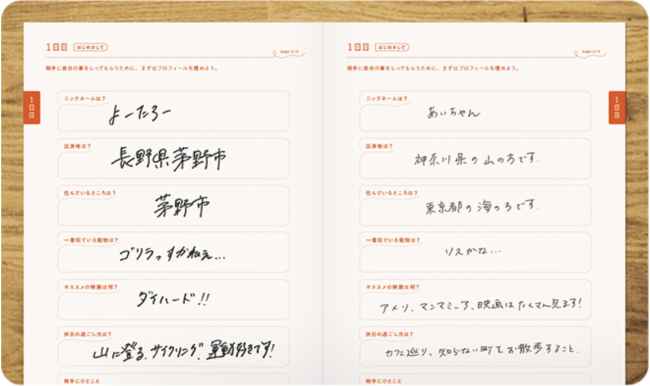 1日目 はじめまして
page 1/3
相手に自分の事をしってもらうために、まずはプロフィールを埋めよう。
1日目
ニックネームは？
よーたろー
出身地は？
長野県茅野市
住んでいるところは？
茅野市
一番似ている動物は？
ゴリラっすかねぇ…
オススメの映画は何？
ダイハード!!
休日の過ごし方は？
山に登る、サイクリング、運動好きです!
相手にひとこと
1日目 はじめまして
相手に自分の事をしってもらうために、まずはプロフィールを埋めよう。
1日目
ニックネームは？
あいちゃん
出身地は？
神奈川県の山の方です.
住んでいるところは？
東京都の海の方です.
一番似ている動物は？
リスかな…
オススメの映画は何？
アメリ、マンマミーア、映画はたくさん見ます!
休日の過ごし方は？
カフェ巡り、知らない町をお散歩すること.
相手にひとこと